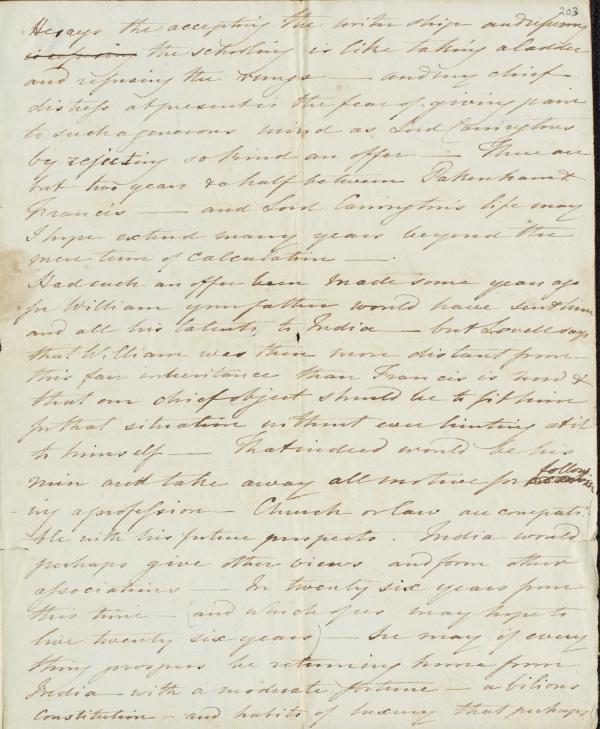 203
He says the accepting the writer ship and refusing
the schooling is like taking a ladder
and refusing the rungs — and my chief
distress at present is the fear of giving pain
to such a generous mind as Lord Carringtons
by rejecting so kind an offer — There are
but two years & a half between Pakenham &
Francis — and Lord Carrington's life may
I hope extend many years beyond the
mere term of calculation —.
Had such an offer been made some years ago
for William your father would have sent him
and all his talents to India — but Lovell says
that William was then more distant from
this fair inheritance than Francis is now &
that our chief object should be to fit him
for that situation without ever hinting at it
to himself — That indeed would be his
ruin and take away all motive for follow
ing a profession — Church or law are compati
ble with his future prospects. India would
perhaps give other views and form other
associations — In twenty six years from
this time — (and which of us may hope to
live twenty six years) — he may if every
thing prospers be returning home from
India — with a moderate fortune — a bilious
constitution — and habits of luxury that perhaps